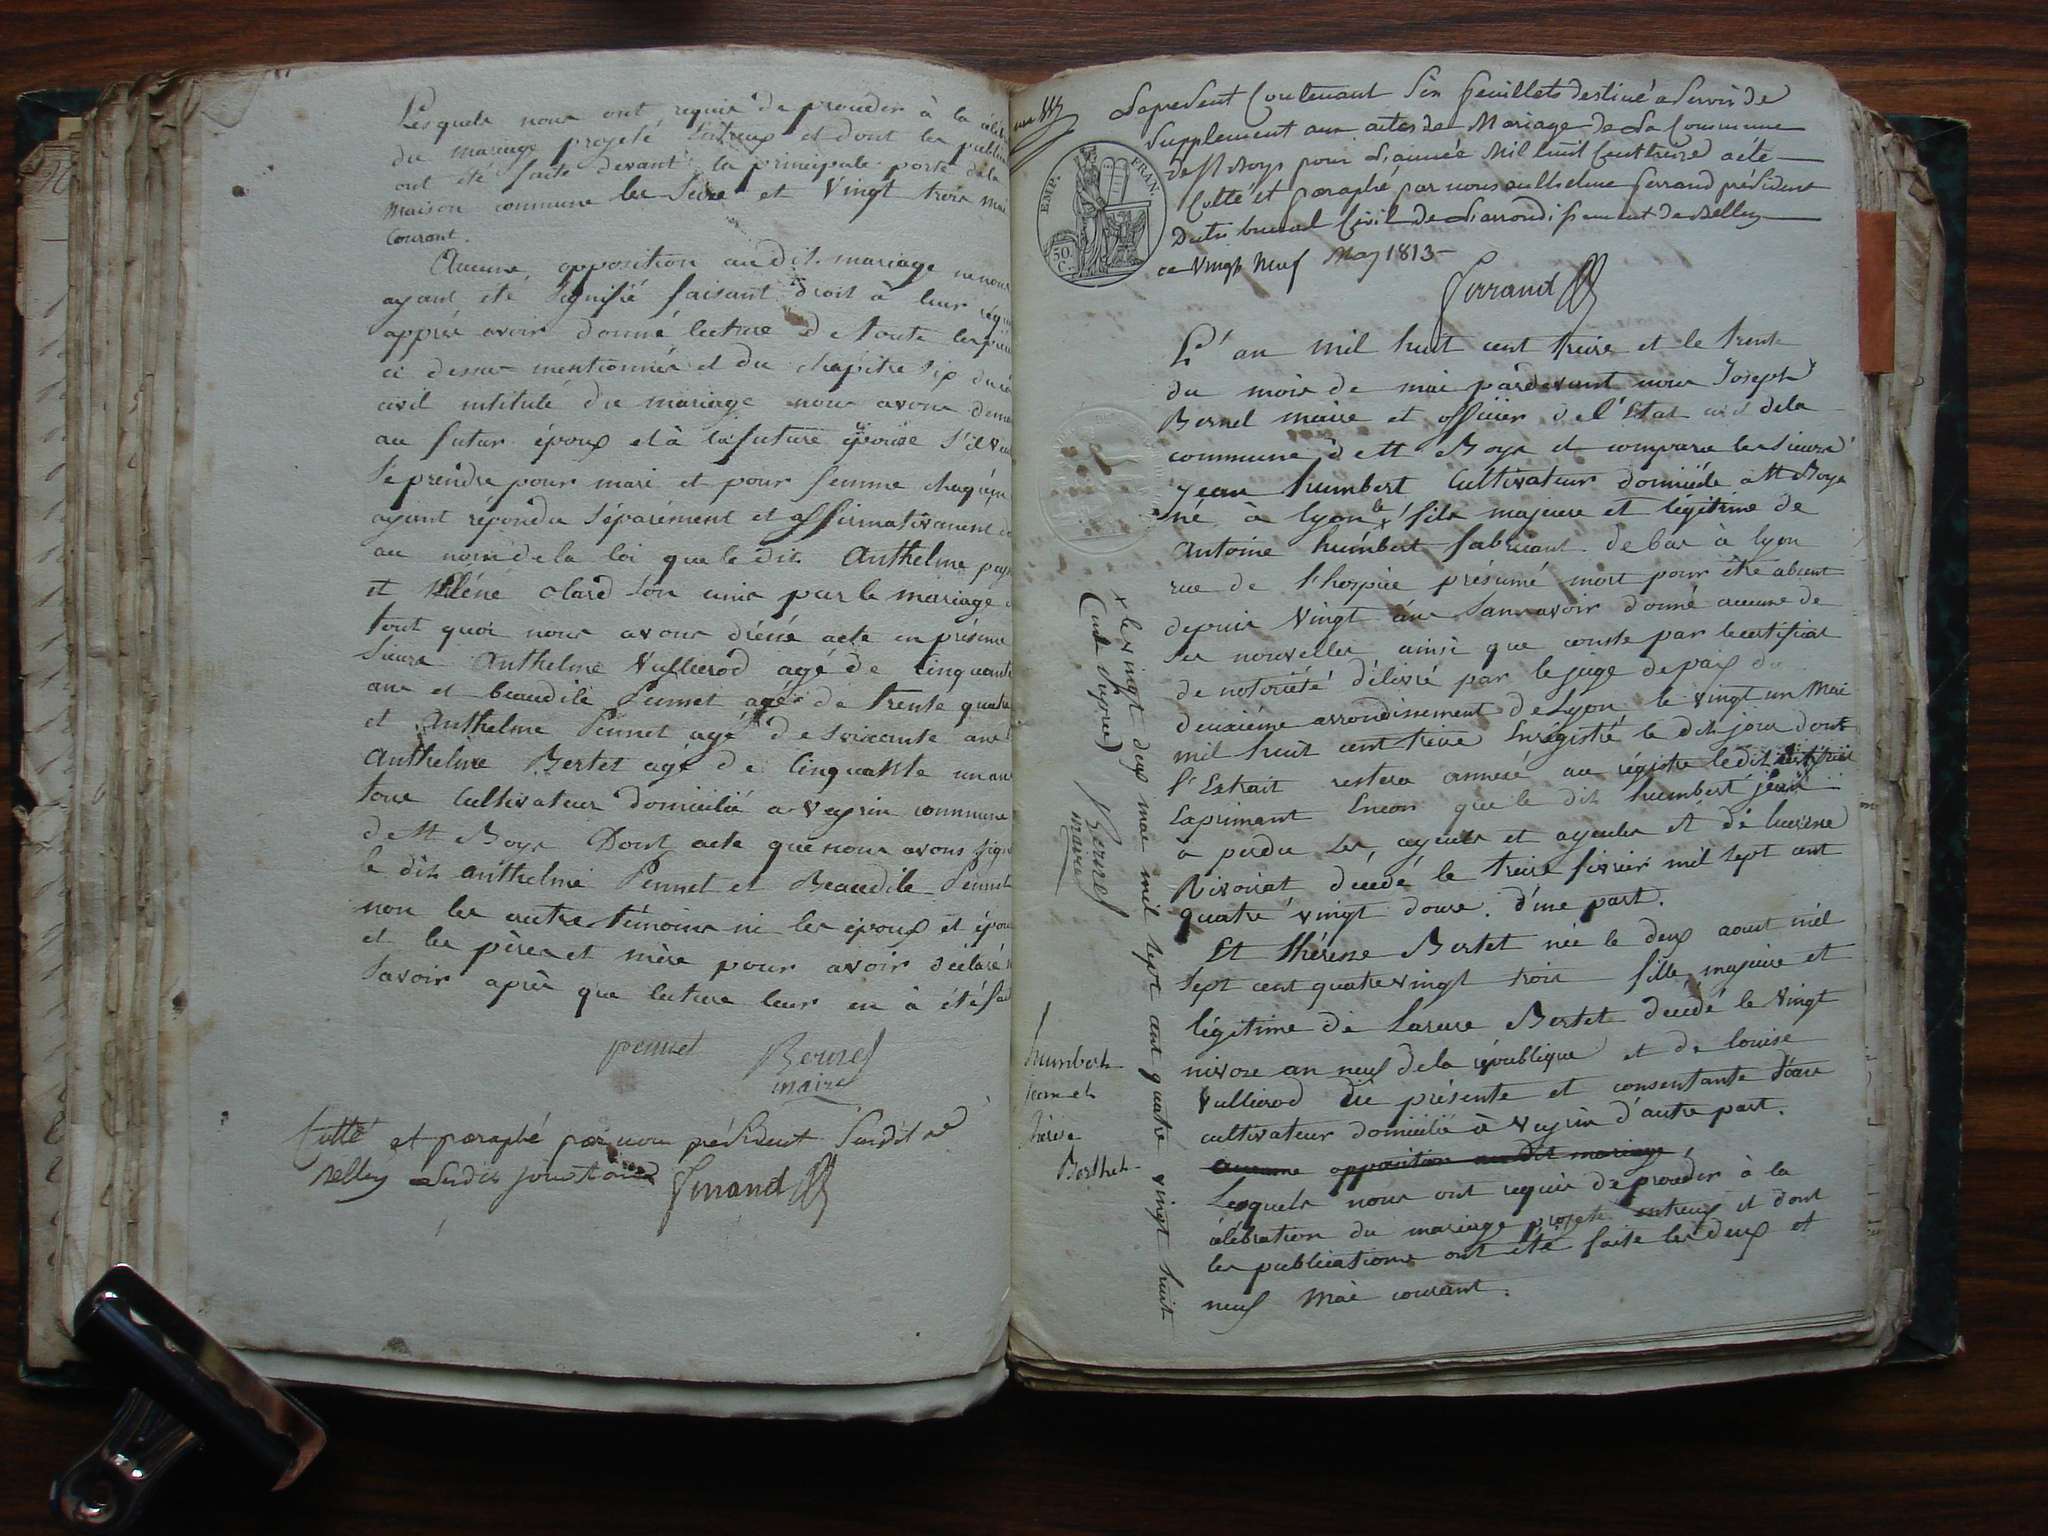 Lesquels nous ont requis de proceder à la
du mariage projeté entreux et dont les
ont été faite devant la principale porte dela
maison commune les Seize et Vingt trois mai
Courant.
Aucune opposition audit mariage ne nous
ayant été signifié faisant droit à leur
apprés avoir donné lecture de toute les
ci dessus mentionnés et du chapitre six du
civil intitulé du mariage nous avons
au futur époux et à la future épouse s'il
se prendre pour mari et pour femme chaqu'un
ayant répondu séparément et affirmativement
au nom de la loi que le dit Anthelme
et héléne Clard son unis par le mariage
tout quoi nous avons dréssé acte en présence
Sieurs Anthelme Vullierod agé de Cinquante
ans et beaudile Pennet agé de trente quatre
et Anthelme Pennet agé de soixante ans
Anthelme Bertet agé de Cinquante un ans
tous Cultivateur domicilié a Veyrin commune
de St Boys Dont acte que nous avons
le dit anthelme Pennet et Beaudile Pennet
non les autre témoins ni les époux et
et les pères et mère pour avoir déclaré
savoir après que lecture leur en à été
pennet Bernel
maire
Cotté et paraphé par nous président susdit
Belley Ferrand
Le present Contenant Six feuillets destiné a Servir de
Supplement aux actes de Mariage de La Commune
de St Boys pour L'année Mil huit Cent treize a été
Cotté et Paraphé par nous anthelme Ferrand président
Du tribunal Civil de L'arrondissement de Belley
ce Vingt Neuf May 1813
EMP. FRAN.
50 C.
Ferrand
L'an mil huit cent treize et le trente
du mois de mai pardevant nous Joseph
Bernel maire et officier de l'Etat civil dela
commune de St Boys et comparu les sieurs
Jean humbert Cultivateur domicilée a St Boys
né à lyon le x fils majeure et légitime de
Antoine humbert fabricant de bas à lyon
rue de l'hospice présumé mort pour être absent
depuis Vingt ans sans avoir donné aucune de
ses nouvelles ainsi que conste par le certificat
de notoriété délivré par le juge de paix du
deuxiéme arrondissement de Lyon le vingt un Mai
mil huit cent treize Enrégistré le dit jour dont
l'Extrait restera annexé au régistre le dit
Exprimant Encore que le dit humbert jean
à perdu ses ayeuls et ayeules et de
Rivoirat décédé le treize fevrier mil sept cent
quatre vingt douze. d'une part.
Et thérèse Bertet née le deux aoust mil
sept cent quatre vingt trois fille majeure et
légitime de Lazare Bertet décédé le Vingt
nivose an neuf dela république et de louise
Vullierod ici présente et consentante
cultivateur domicilié à Veyrin d'autre part.
aucune opposition au dit mariage
Lesquels nous ont requis de proceder à la
célébration du mariage projeté entreux et dont
les publications ont été faite les deux et
neuf Mai courant.
x le vingt deux mai mil sept cent quatre vingt huit
Bernel
maire
humbert
jean et
thérèse
Berthet